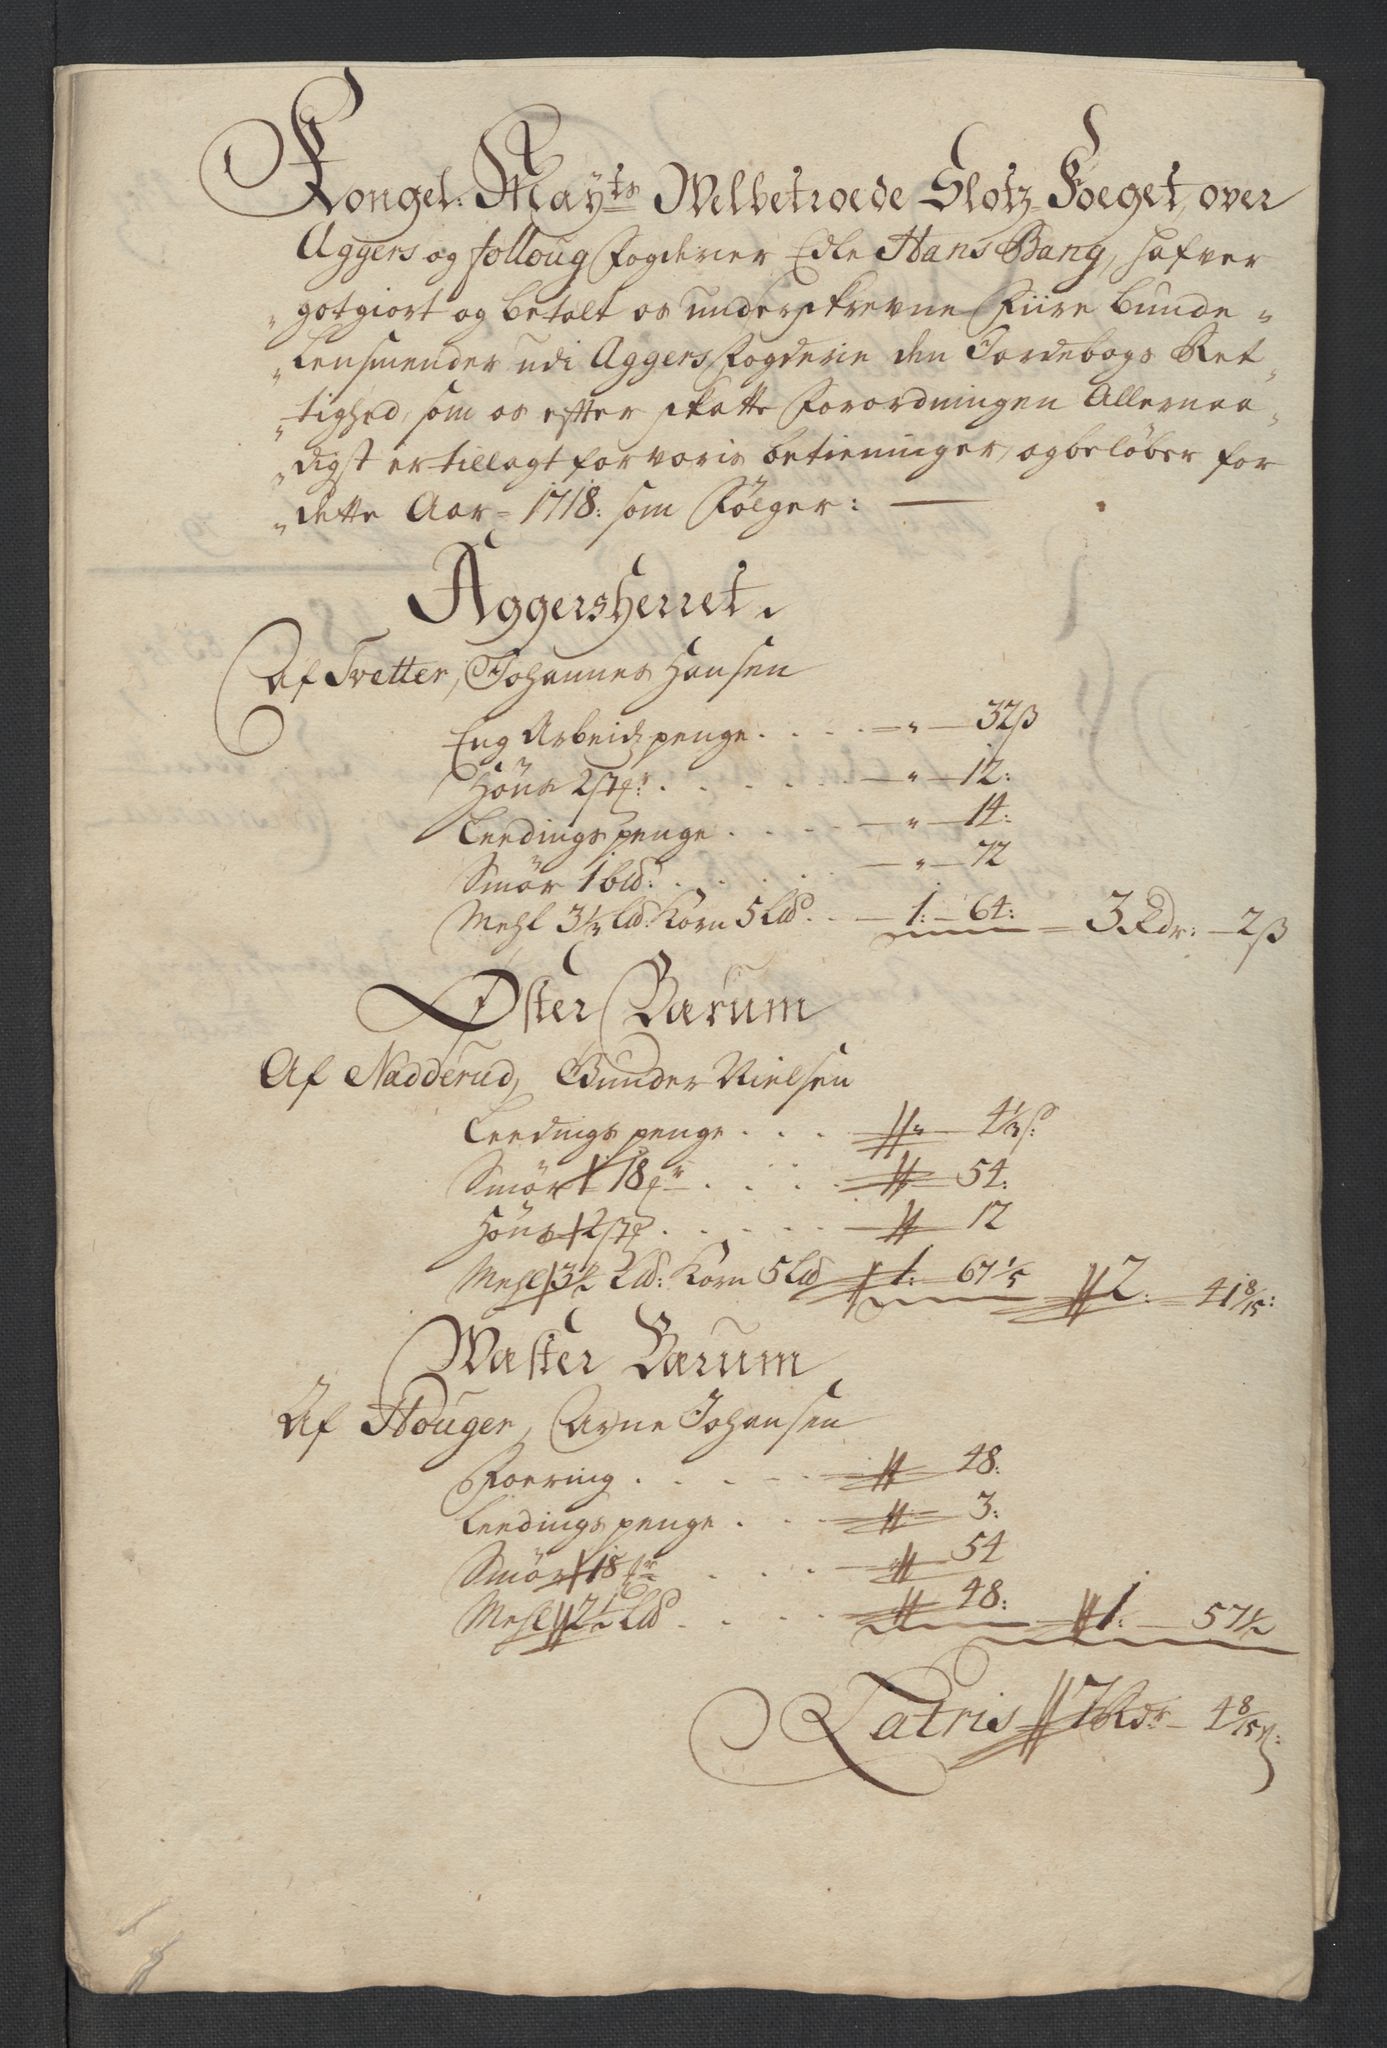 Kongel: Mayts Welbetroede Slotz Foeget, over
Aggers og folloug fogderier Edle Hans Bang, hafver
gotgiort og betalt os underskrevne Fiire bunde
Lensmender udi Aggers fogderie den Jordebogs Ret
tighed, som os efter skatte Forordningen Allernaa
digst er tillagt for voris betieninger, og beløber for
dette Aar 1718: som følger:
Aggersherret.
Af Tvetter, Johannes Hansen
Eng Arbeidz penge . . . . " 32ß
Høns 2 st: . . . . " 12:
Leedings penge . . . . " 14:
Smør 1 bld: . . . . " 72
Mehl 3 1/3 Lld: Korn 5 Lld . . 1: 64: 3 Rdr: 2ß
Øster Bærum
Af Nadderud, Gunder Nielsen
Leedings penge . . . " 4 1/3 ß:
Smør 18 . . . 54:
Høns 2 st . . . . 12
Mehl 3 1/2 Lld: Korn 5 Lld 1: 67 1/5 2: 41 8/15:
Wæster Bærum
Af Houger, Arne Johansen
Foering . . . . 48:
Leedings penge . . . 3:
Smør 18 . . . 54
Mehl 2 1/2 Lld . . . 48: 1: 57 1/2
Latris 7 Rdr 4 8/15 ß: